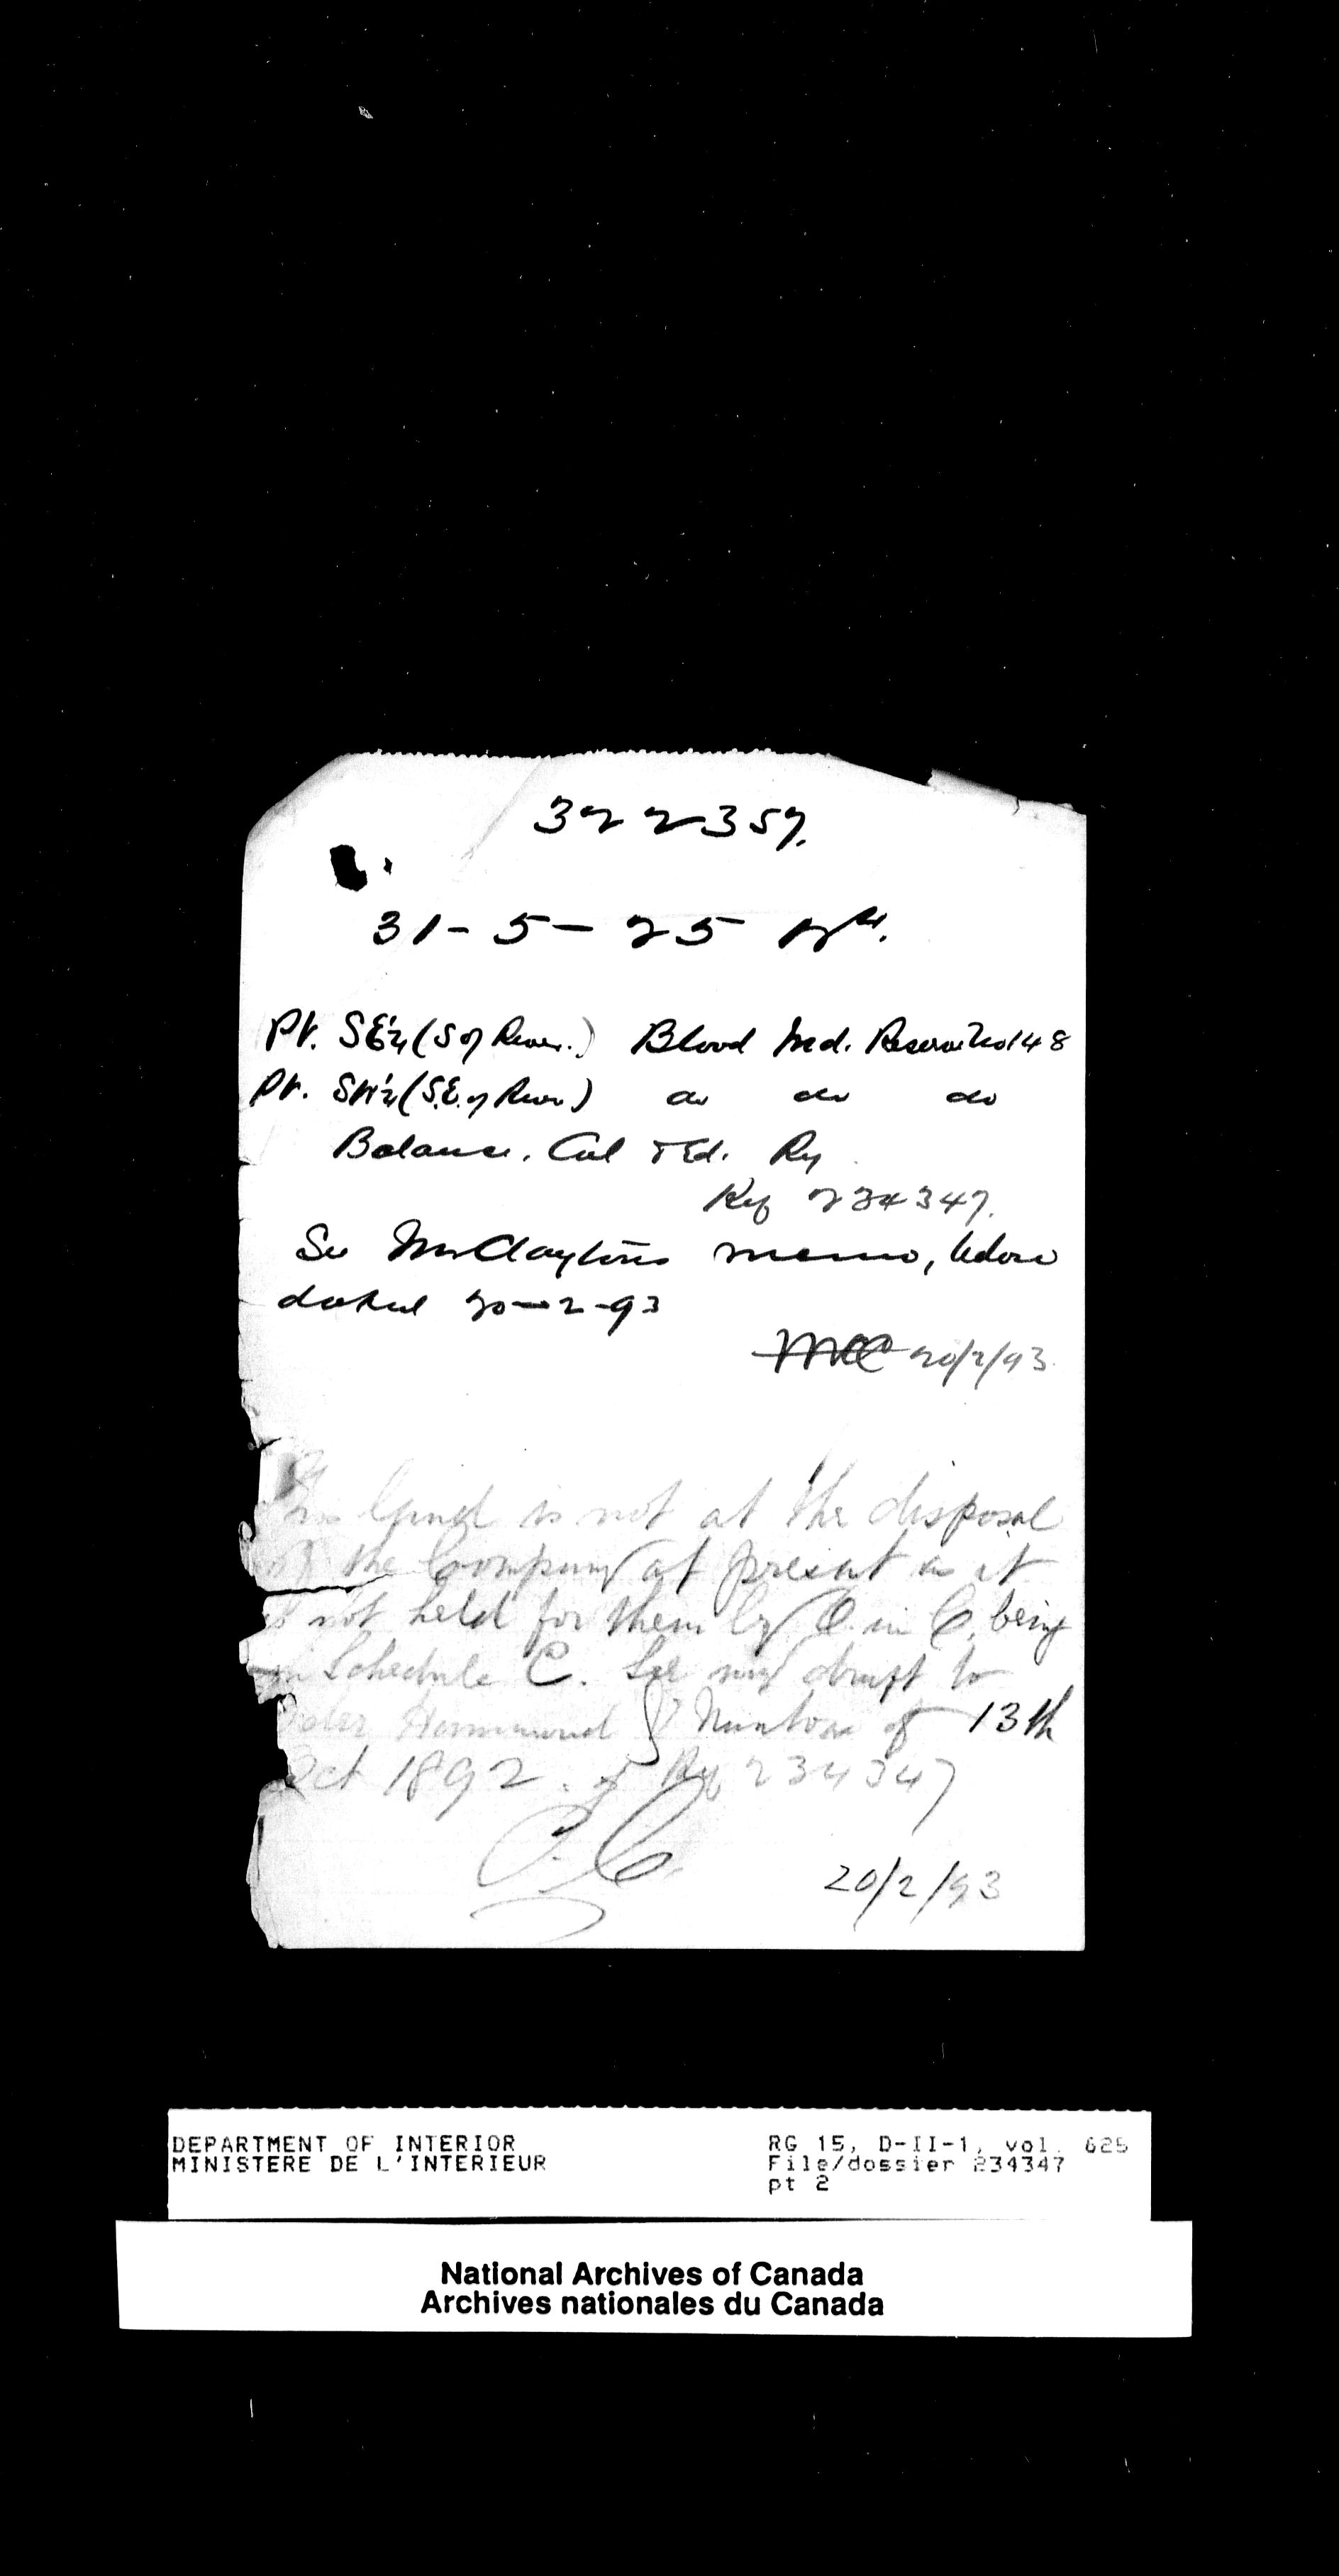 322357.
31-5-25 W4.
Pt. SE¼ (S of River.) Blood Ind. Reserve No 148
Pt. SW¼ (S.E. of River) do do do
Balance. Cal & Ed. Ry
Ref 234347.
See Mr Clayton's memo, below
dated 20-2-93
20/2/93.
This land is not at the disposal
of the Company at present as it
is not held for them by O. in C. being
in Schedule C. See my draft to
Osler Hammond & Nanton of 13th
Oct 1892. of Ref 234347
C.
20/2/93
DEPARTMENT OF INTERIOR
MINISTERE DE L'INTERIEUR
RG 15, D-II-1, vol. 625
File/dossier 234347
pt 2
National Archives of Canada
Archives nationales du Canada